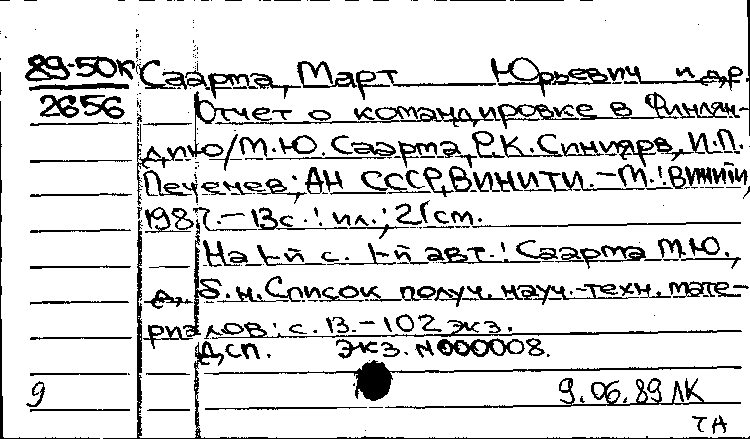 89-50к Саарма, Март Юрьевич и др.
2656 Отчет о командировке в Финлян-
дию/М.Ю. Саарма, Р.К. Синиярв, И.П.
Печенев; АН СССР, ВИНИТИ. - М.: ВИНИТИ,
1987. - 13с.: ил.; 21см.
На 1-й с. 1-й авт.: Саарма М.Ю.,
д. б. н. Список получ. науч.-техн. мате-
риалов: с. 13. - 102 экз.
Дсп. Экз. N000008.
9 9.06.89 ЛК
ТА